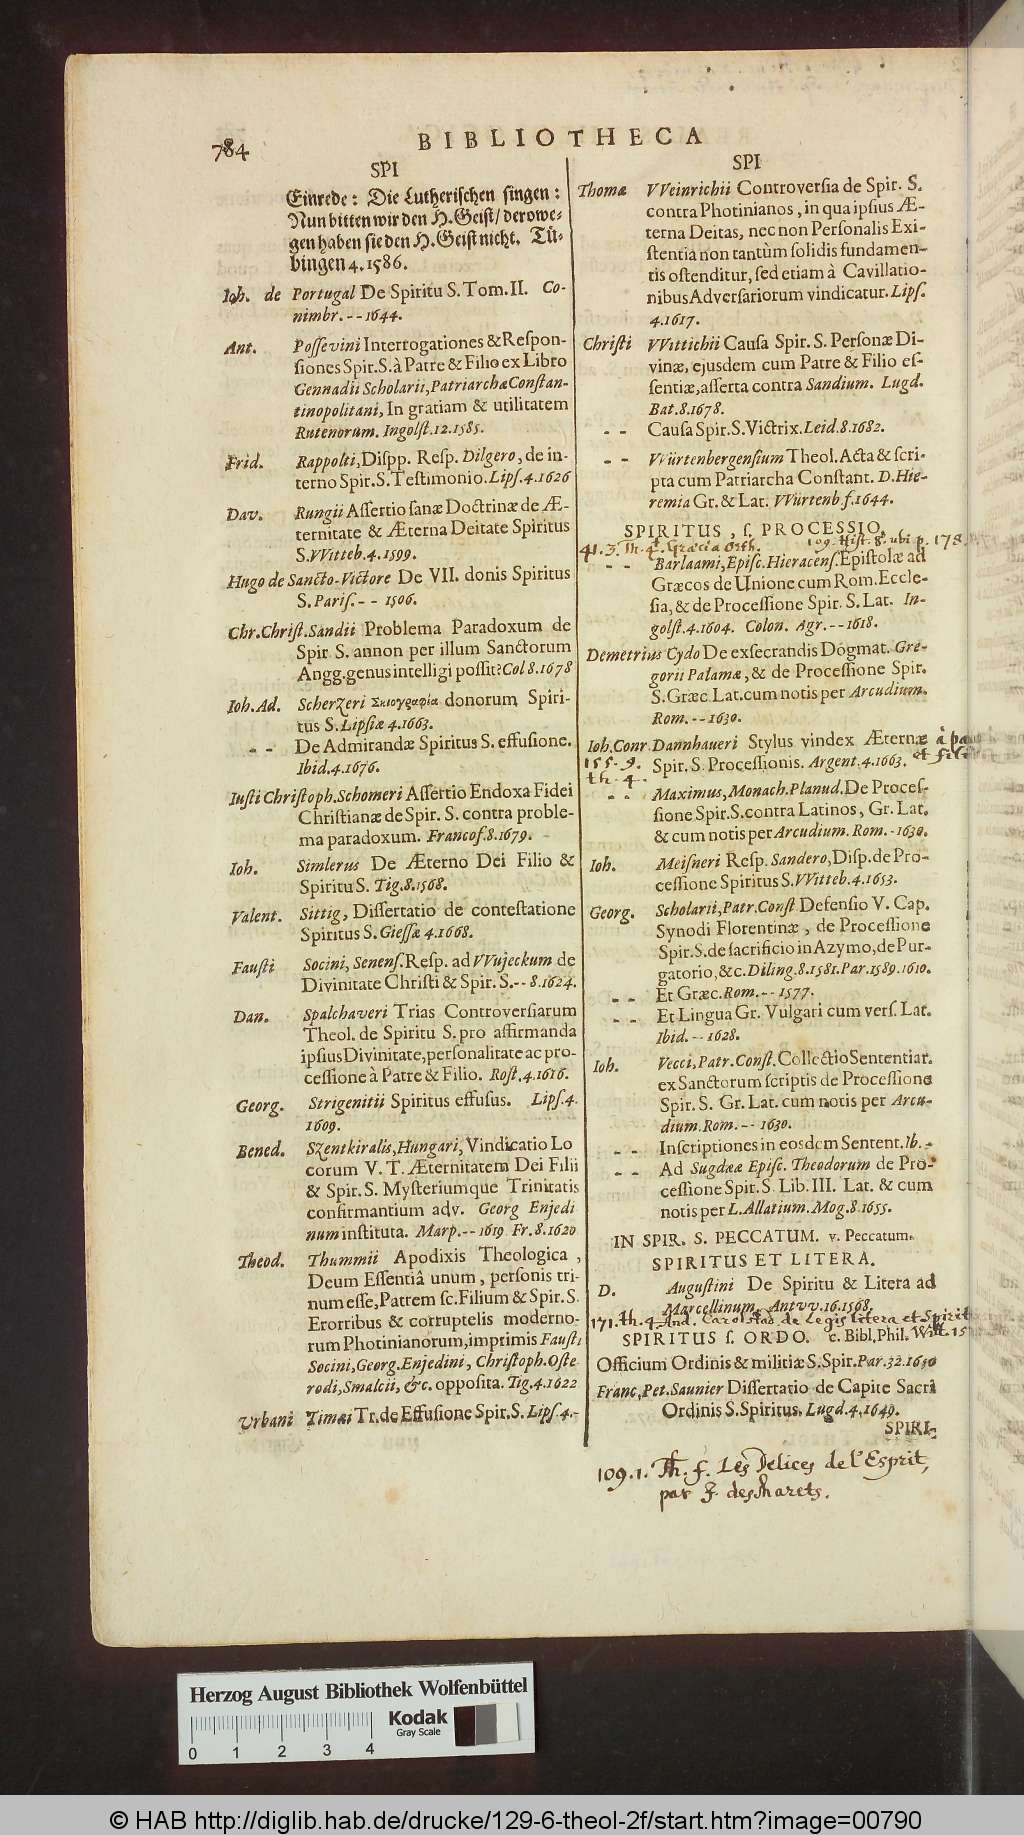 784
BIBLIOTHECA
SPI
Einrede: Die Lutherischen singen:
Nun bitten wir den H. Geist/ derowe-
gen haben sie den H. Geist nicht. Tü-
bingen 4. 1586.
Ioh. de Portugal De Spiritu S. Tom. II. Co-
nimbr. -- 1644.
Ant. Possevini Interrogationes & Respon-
siones Spir. S. à Patre & Filio ex Libro
Gennadii Scholarii, Patriarchæ Constan-
tinopolitani, In gratiam & utilitatem
Rutenorum. Ingolst. 12. 1585.
Frid. Rappolti, Dispp. Resp. Dilgero, de in-
terno Spir. S. Testimonio. Lips. 4. 1626
Dav. Rungii Assertio sanæ Doctrinæ de Æ-
ternitate & Æterna Deitate Spiritus
S. VVitteb. 4. 1599.
Hugo de Sancto-Victore De VII. donis Spiritus
S. Paris. -- 1506.
Chr. Christ. Sandii Problema Paradoxum de
Spir S. annon per illum Sanctorum
Angg. genus intelligi possit? Col 8. 1678
Ioh. Ad. Scherzeri Σκιογραφία donorum Spiri-
tus S. Lipsiæ 4. 1663.
-- De Admirandæ Spiritus S. effusione.
Ibid. 4. 1676.
Iusti Christoph. Schomeri Assertio Endoxa Fidei
Christianæ de Spir. S. contra proble-
ma paradoxum. Francof. 8. 1679.
Ioh. Simlerus De Æterno Dei Filio &
Spiritu S. Tig. 8. 1568.
Valent. Sittig, Dissertatio de contestatione
Spiritus S. Giessæ 4. 1668.
Fausti Socini, Senens. Resp. ad VVujeckum de
Divinitate Christi & Spir. S. -- 8. 1624.
Dan. Spalchaveri Trias Controversiarum
Theol. de Spiritu S. pro affirmanda
ipsius Divinitate, personalitate ac pro-
cessione à Patre & Filio. Rost. 4. 1616.
Georg. Strigenitii Spiritus effusus. Lips. 4.
1609.
Bened. Szentkiralis, Hungari, Vindicatio Lo
corum V. T. Æternitatem Dei Filii
& Spir. S. Mysteriumque Trinitatis
confirmantium adv. Georg Enjedi
num instituta. Marp. -- 1619 Fr. 8. 1620
Theod. Thummii Apodixis Theologica,
Deum Essentiâ unum, personis tri-
num esse, Patrem sc. Filium & Spir. S.
Erorribus & corruptelis moderno-
rum Photinianorum, imprimis Fausti
Socini, Georg. Enjedini, Christoph. Oste-
rodi, Smalcii, &c. opposita. Tig. 4. 1622
Urbani Timæi Tr. de Effusione Spir. S. Lips. 4.-
SPI
Thomæ VVeinrichii Controversia de Spir. S.
contra Photinianos, in qua ipsius Æ-
terna Deitas, nec non Personalis Exi-
stentia non tantùm solidis fundamen-
tis ostenditur, sed etiam à Cavillatio-
nibus Adversariorum vindicatur. Lips.
4. 1617.
Christi VVittichii Causa Spir. S. Personæ Di-
vinæ, ejusdem cum Patre & Filio es-
sentiæ, asserta contra Sandium. Lugd.
Bat. 8. 1678.
-- Causa Spir. S. Victrix. Leid. 8. 1682.
-- VVürtenbergensium Theol. Acta & scri-
pta cum Patriarcha Constant. D. Hie-
remia Gr. & Lat. VVürtenb f. 1644.
SPIRITUS, s. PROCESSIO.
41. 3. Th. 4. Græcia Orth. 109. Hist. 8. ubi p. 178.
-- Barlaami, Episc. Hieracens. Epistolæ ad
Græcos de Unione cum Rom. Eccle-
sia, & de Processione Spir. S. Lat. In-
golst. 4. 1604. Colon. Agr. -- 1618.
Demetrius Cydo De exsecrandis Dogmat. Gre-
gorii Palamæ, & de Processione Spir.
S. Græc Lat. cum notis per Arcudium.
Rom. -- 1630.
Ioh. Conr Dannhaueri Stylus vindex Æternæ à pa
155. 9. Spir. S. Processionis. Argent. 4. 1663. et fili
th. 4.
-- Maximus, Monach. Planud. De Proces-
sione Spir. S. contra Latinos, Gr. Lat.
& cum notis per Arcudium. Rom. - 1630.
Ioh. Meisneri Resp. Sandero, Disp. de Pro-
cessione Spiritus S. VVitteb. 4. 1653.
Georg. Scholarii, Patr. Const Defensio V. Cap.
Synodi Florentinæ, de Processione
Spir. S. de sacrificio in Azymo, de Pur-
gatorio, &c. Diling. 8. 1581. Par. 1589. 1610.
-- Et Græc. Rom. -- 1577.
-- Et Lingua Gr. Vulgari cum vers. Lat.
Ibid. -- 1628.
Ioh. Vecci, Patr. Const. Collectio Sententiar.
ex Sanctorum scriptis de Processione
Spir. S. Gr. Lat. cum notis per Arcu-
dium. Rom. -- 1630.
-- Inscriptiones in eosdem Sentent. Ib. -
-- Ad Sugdææ Episc. Theodorum de Pro-
cessione Spir. S. Lib. III. Lat. & cum
notis per L. Allatium. Mog. 8. 1655.
IN SPIR. S. PECCATUM. v. Peccatum.
SPIRITUS ET LITERA.
D. Augustini De Spiritu & Litera ad
Marcellinum. Antvv. 16. 1568.
171. th. 4. And. Carolstad. de Legis litera et Spirit
SPIRITUS s. ORDO. c. Bibl, Phil. Witt. 15
Officium Ordinis & militiæ S. Spir. Par. 32. 1650
Franc, Pet. Saunier Dissertatio de Capite Sacri
Ordinis S. Spiritus. Lugd. 4. 1649.
SPIRI-
109. 1. Th. f. Les Delices de l'Esprit,
par J. desMarets.
Herzog August Bibliothek Wolfenbüttel
Kodak
Gray Scale
0 1 2 3 4
© HAB http://diglib.hab.de/drucke/129-6-theol-2f/start.htm?image=00790